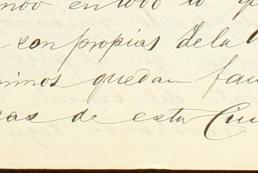 en todo lo q
son propias de la
nimos quedan fau
as de esta Ciu